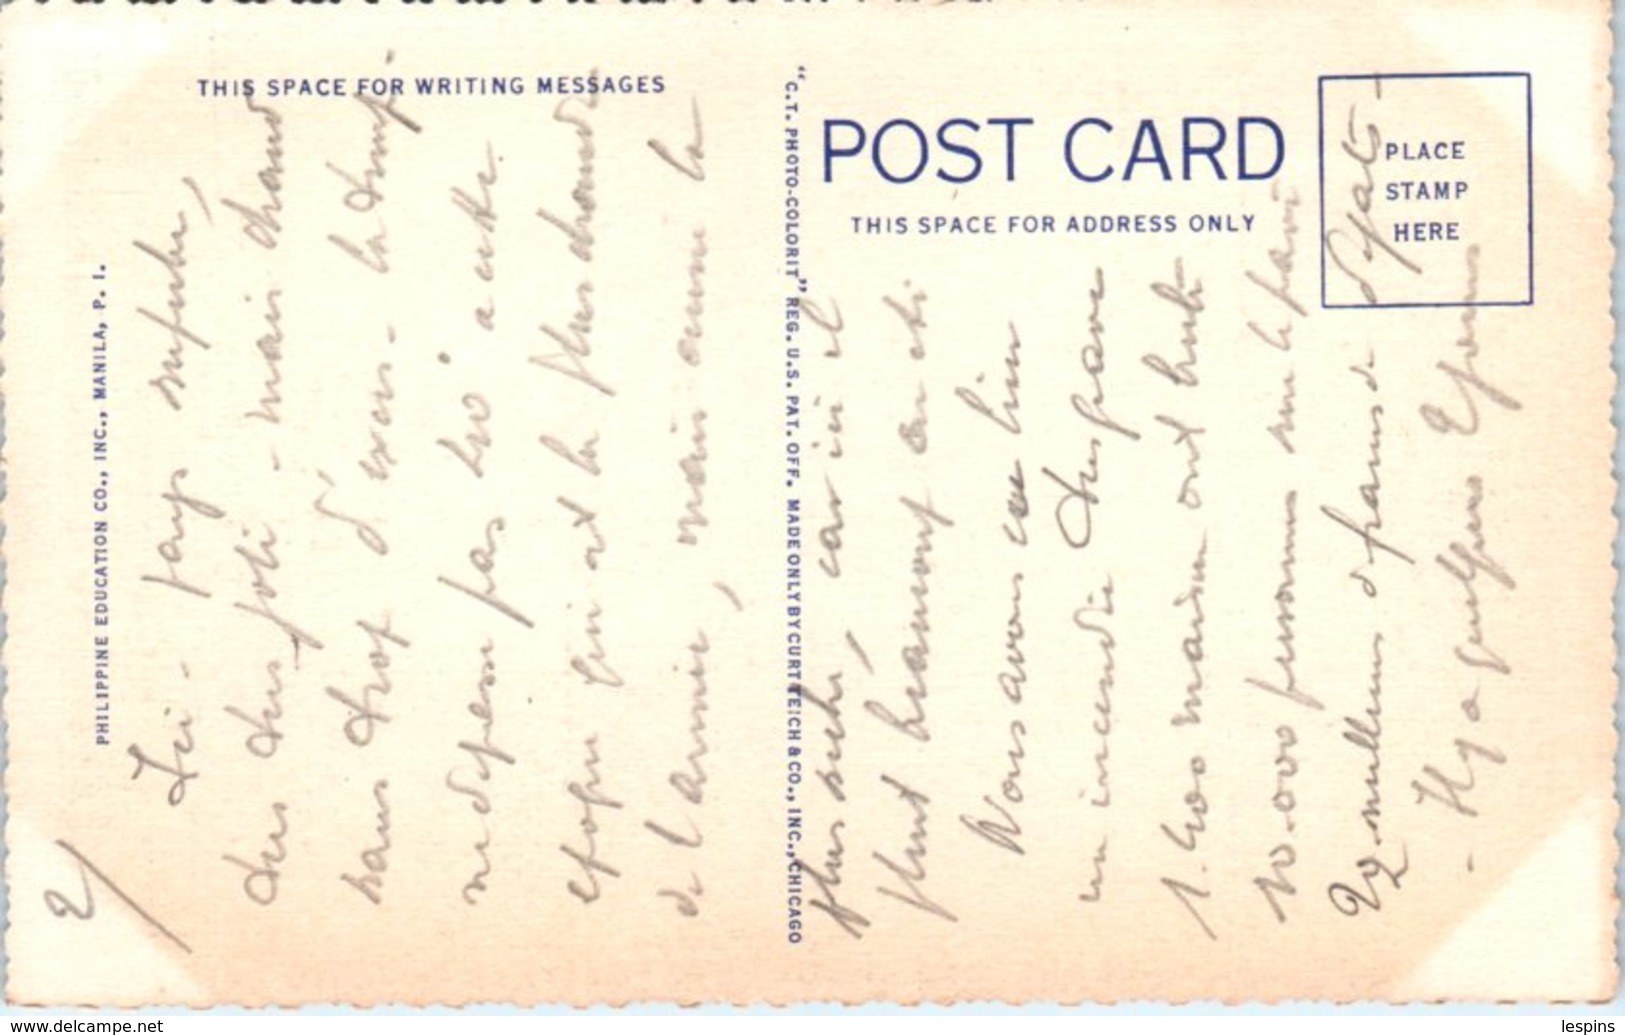 THIS SPACE FOR WRITING MESSAGES
PHILIPPINE EDUCATION CO., INC., MANILA, P. I.
"C.T. PHOTO-COLORIT" REG. U.S. PAT. OFF. MADE ONLY BY CURT TEICH & CO., INC., CHICAGO
POST CARD
THIS SPACE FOR ADDRESS ONLY
PLACE
STAMP
HERE
2/
Ici - pays superbe,
très très joli - mais chaud
sans trop d'excès - la temp-
ne dépasse pas 40° à cette
époque qui est la plus chaude
de l'année, mais comme la
plus sèche, car ici il
pleut beaucoup en été
Nous avons eu hier
un incendie très grave
1.400 maisons ont brulé
10.000 personnes sur le pavé
2 millions de francs de dégats -
- Il y a quelques
lespins
www.delcampe.net